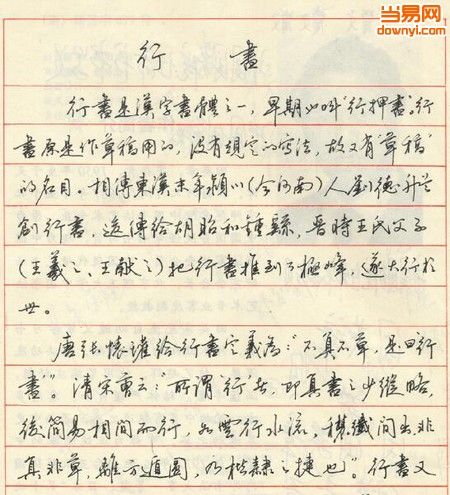 当易网
downyi.com
行書
行書是漢字書體之一，早期叫"行押書"，行
書原是作草稿用的，没有規定的寫法，故又有"草稿"
的名目。相傳東漢末年潁川（今河南）人劉德升始
創行書，遂傳給胡昭和鍾繇，晋時王氏父子
（王羲之、王献之）把行書推到了極峰，遂大行於
世。
唐張懷瓘給行書定義爲："不真不草，是曰行
書"。清宋曹云："所謂'行'者，即真書之少縱略，
後簡易相間而行，如雲行水流，穠纖間出，非
真非草，離方遁圓，乃楷隷之捷也"。行書又